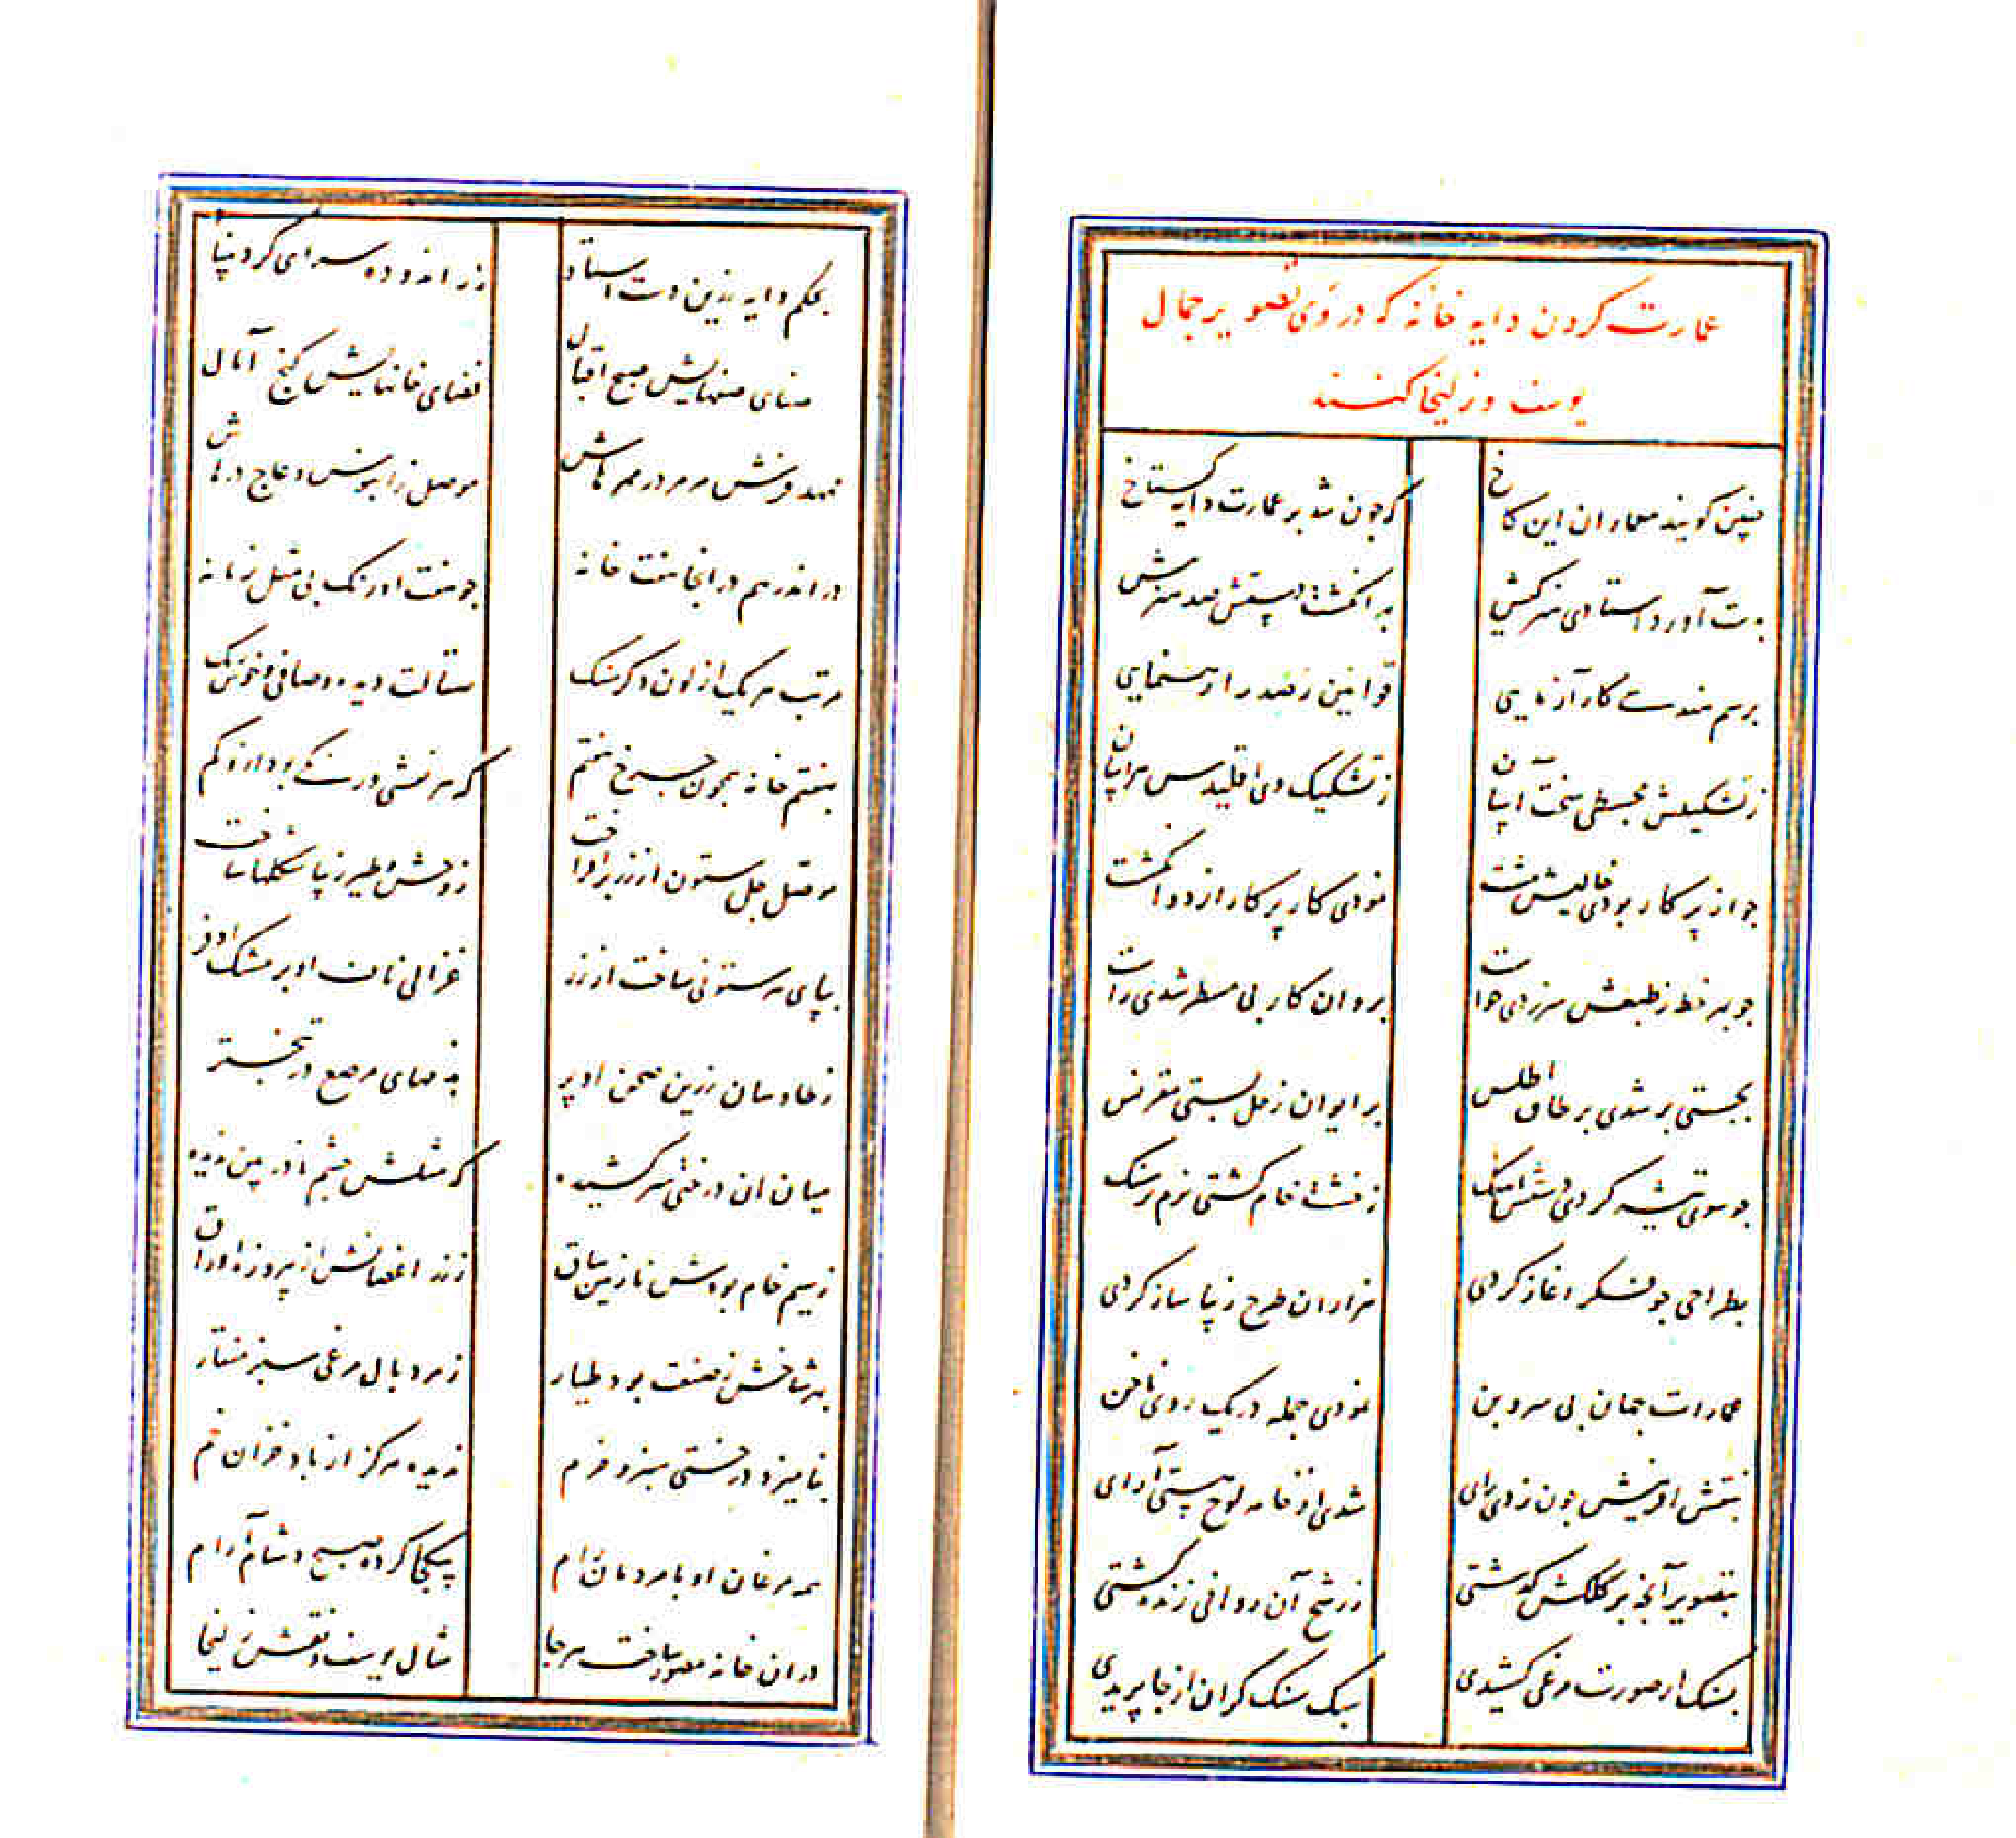 عمارت کردن دایه خانه که در وی تصویر جمال
یوسف و زلیخا کنند
چنین کویند معماران این کاخ
که چون شد بر عمارت دایه کستاخ
بدست آورد استادی هنرکیش
به انکشتان دستش صد هنر بیش
برسم هندسی کار آزمایی
قوانین رصد را رهنمایی
ز تشکیلش مجسطی سخت آسان
ز تشکیک وی اقلیدس هراسان
چو از پرکار بودی خالیش مشت
نمودی کار پرکار از دو انکشت
چو بهر خط ز طبعش سر زدی خواست
بر او آن کار بی مسطر شدی راست
بجستی بر شدی بر طاق اطلس
بر ایوان زحل بستی مقرنس
چو سوی تیشه کردی دستش آهنک
ز خشت خام کشتی نرم تر سنک
بطراحی چو فکر اغاز کردی
هزاران طرح زیبا ساز کردی
عمارات جهان بی سر و بن
نمودی جمله در یک روی ناخن
بنقش آفرینش چون زدی رای
شدی از خامه لوح هستی آرای
بتصویر آنچه بر کلکش کذشتی
ز رشح آن روانی زنده کشتی
بسنک ار صورت مرغی کشیدی
سبک سنک کران از جا پریدی
بحکم دایه زرین دست استاد
زر اندوده سرای کرد بنیاد
صفای صفهایش صبح اقبال
فضای خانهایش کنج آمال
ممهد فرش مرمر در ممرهاش
موصل ز ابنوس و عاج درهاش
در اندر هم در انجا هفت خانه
چو هفت اورنک بی مثل زمانه
مرتب هر یک از لون دکر سنک
صقالت دیده و صافی و خوش رنک
بهفتم خانه همچون چرخ هفتم
که هر نقشی و رنکی بود ازو کم
مرصع چل ستون از زر برافراخت
ز وحش و طیر زیبا شکلها ساخت
بپای هر ستونی ساخت از زر
غزالی ناف او پر مشک اذفر
ز طاوسان زرین صحن او پر
به دمهای مرصع در تبختر
میان ان درختی سر کشیده
که مثلش چشم نادر بین ندیده
ز سیم خام بودش نازنین ساق
ز زر اغصانش از پیروزه اوراق
بهر شاخش ز صنعت بود طیار
زمرد بال مرغی سبز منقار
بنامیزد درختی سبز و خرم
ندیده هرکز از باد خزان خم
همه مرغان او با مردمان رام
بیکجا کرده صبح و شام آرام
دران خانه مصور ساخت هر جا
مثال یوسف و نقش زلیخا